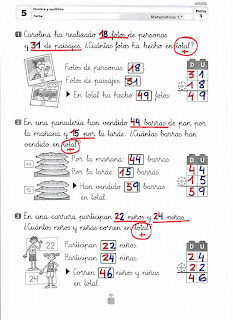 5
Nombre y apellidos
Fecha
Matemáticas 1.º
Ficha
3
1 Carolina ha realizado 18 fotos de personas
y 31 de paisajes. ¿Cuántas fotos ha hecho en total?
+
Fotos de personas: 18
Fotos de paisajes: 31
En total ha hecho 49 fotos.
D U
3 1
+ 1 8
4 9
2 En una panadería han vendido 44 barras de pan por
la mañana y 15 por la tarde. ¿Cuántas barras han
vendido en total?
+
Por la mañana: 44 barras.
Por la tarde: 15 barras.
Han vendido 59 barras
en total.
D U
4 4
+ 1 5
5 9
3 En una carrera participan 22 niños y 24 niñas.
¿Cuántos niños y niñas corren en total?
+
22
24
Participan 22 niños.
Participan 24 niñas.
Corren 46 niños y niñas
en total.
D U
2 4
+ 2 2
4 6